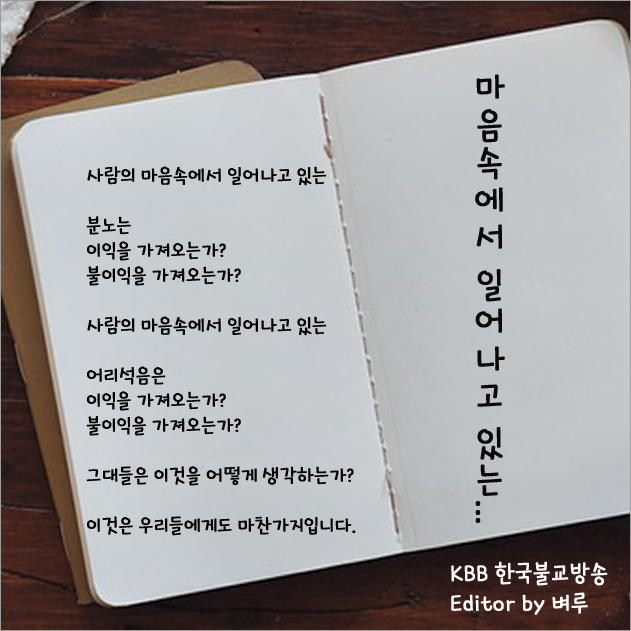 사람의 마음속에서 일어나고 있는
분노는
이익을 가져오는가?
불이익을 가져오는가?
사람의 마음속에서 일어나고 있는
어리석음은
이익을 가져오는가?
불이익을 가져오는가?
그대들은 이것을 어떻게 생각하는가?
이것은 우리들에게도 마찬가지입니다.
마음속에서 일어나고 있는...
KBB 한국불교방송
Editor by 벼루